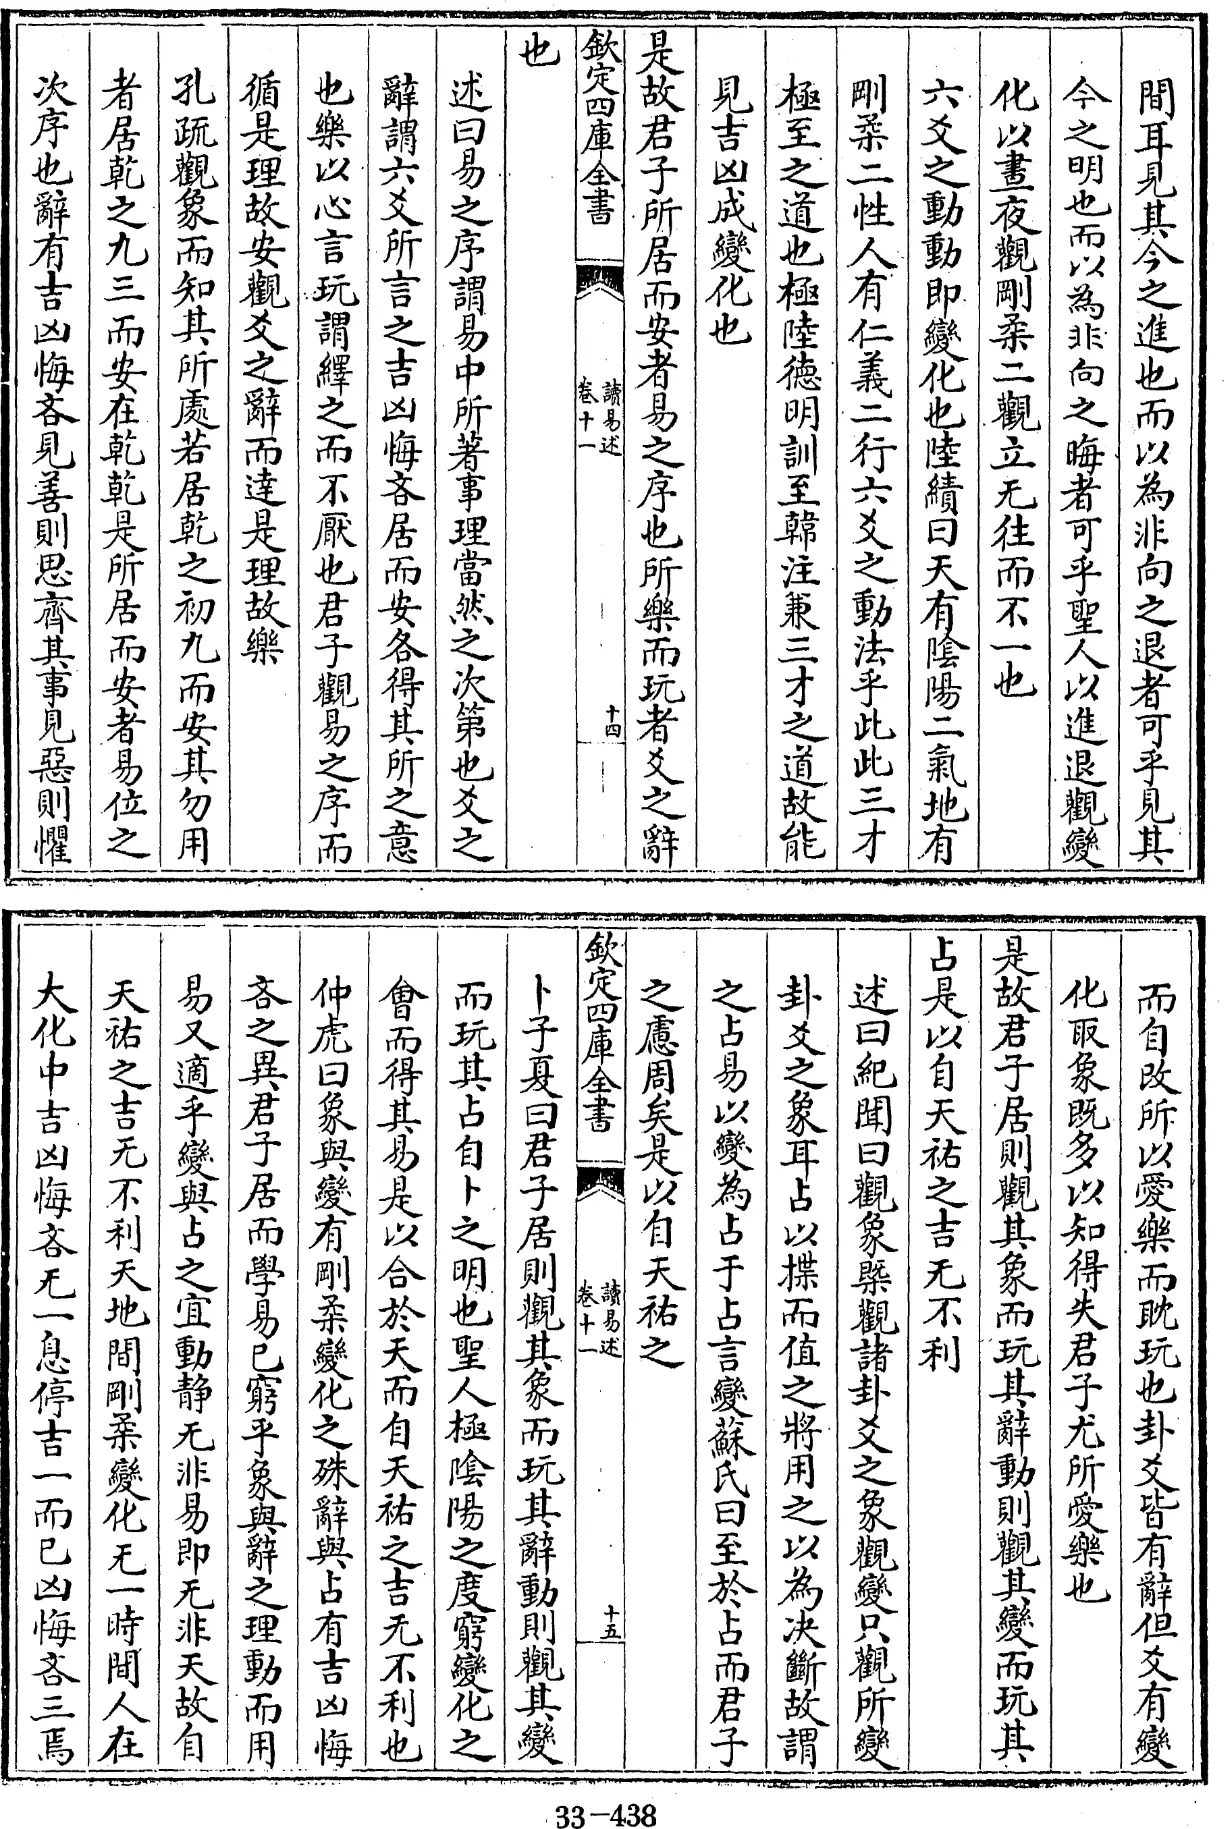 間耳見其今之進也而以為非向之退者可乎見其
今之明也而以為非向之晦者可乎聖人以進退觀變
化以晝夜觀剛柔二觀立无往而不一也
六爻之動動即變化也陸績曰天有陰陽二氣地有
剛柔二性人有仁義二行六爻之動法乎此此三才
極至之道也極陸德明訓至韓注兼三才之道故能
見吉凶成變化也
是故君子所居而安者易之序也所樂而玩者爻之辭
欽定四庫全書
讀易述
卷十一
十四
也
述曰易之序謂易中所著事理當然之次第也爻之
辭謂六爻所言之吉凶悔吝居而安各得其所之意
也樂以心言玩謂繹之而不厭也君子觀易之序而
循是理故安觀爻之辭而達是理故樂
孔疏觀象而知其所處若居乾之初九而安其勿用
者居乾之九三而安在乾乾是所居而安者易位之
次序也辭有吉凶悔吝見善則思齊其事見惡則懼
而自改所以愛樂而耽玩也卦爻皆有辭但爻有變
化取象既多以知得失君子尤所愛樂也
是故君子居則觀其象而玩其辭動則觀其變而玩其
占是以自天祐之吉无不利
述曰紀聞曰觀象槩觀諸卦爻之象觀變只觀所變
卦爻之象耳占以揲而值之將用之以為决斷故謂
之占易以變為占于占言變蘇氏曰至於占而君子
之慮周矣是以自天祐之
欽定四庫全書
讀易述
卷十一
十五
卜子夏曰君子居則觀其象而玩其辭動則觀其變
而玩其占自卜之明也聖人極陰陽之度窮變化之
會而得其易是以合於天而自天祐之吉无不利也
仲虎曰象與變有剛柔變化之殊辭與占有吉凶悔
吝之異君子居而學易已窮乎象與辭之理動而用
易又適乎變與占之宜動静无非易即无非天故自
天祐之吉无不利天地間剛柔變化无一時間人在
大化中吉凶悔吝无一息停吉一而已凶悔吝三焉
33-438